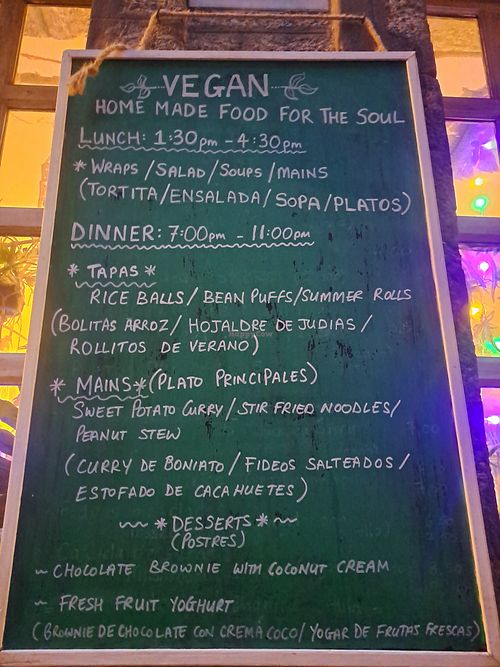 VEGAN
HOME MADE FOOD FOR THE SOUL
LUNCH: 1:30pm - 4:30pm
* WRAPS / SALAD / SOUPS / MAINS
(TORTITA / ENSALADA / SOPA / PLATOS)
DINNER: 7:00pm - 11:00pm
* TAPAS *
RICE BALLS / BEAN PUFFS / SUMMER ROLLS
(BOLITAS ARROZ / HOJALDRE DE JUDIAS /
ROLLITOS DE VERANO)
* MAINS * (PLATO PRINCIPALES)
SWEET POTATO CURRY / STIR FRIED NOODLES /
PEANUT STEW
(CURRY DE BONIATO / FIDEOS SALTEADOS /
ESTOFADO DE CACAHUETES)
~~ * DESSERTS * ~~
(POSTRES)
~ CHOCLATE BROWNIE WITH COCONUT CREAM
~ FRESH FRUIT YOGHURT
(BROWNIE DE CHOCOLATE CON CREMA COCO / YOGAR DE FRUTAS FRESCAS)